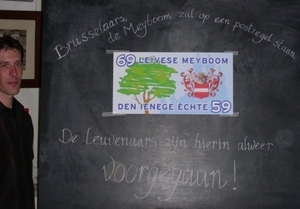 Brusselaars,
de Meyboom zal op een postzegel staan
69 LEIVESE MEYBOOM
DEN IENEGE ÈCHTE 59
De Leuvenaars zijn hierin alweer
voorgegaan!